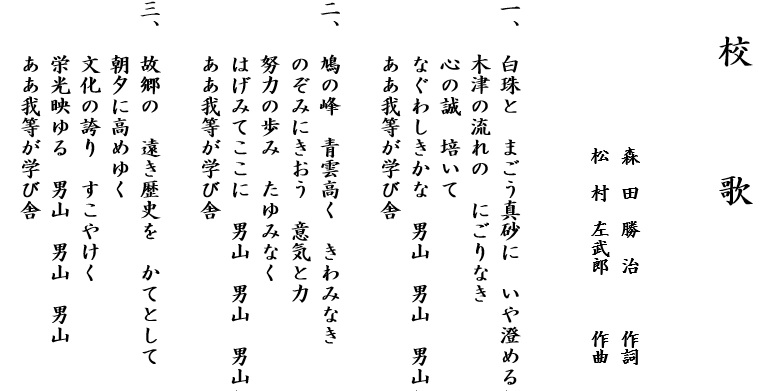 校歌
森田勝治 作詞
松村左武郎 作曲
一、
白珠と まごう真砂に いや澄める
木津の流れの にごりなき
心の誠 培いて
なぐわしきかな 男山 男山 男山
ああ我等が学び舎
二、
鳩の峰 青雲高く きわみなき
のぞみにきおう 意気と力
努力の歩み たゆみなく
はげみてここに 男山 男山 男山
ああ我等が学び舎
三、
故郷の 遠き歴史を かてとして
朝夕に高めゆく
文化の誇り すこやけく
栄光映ゆる 男山 男山 男山
ああ我等が学び舎